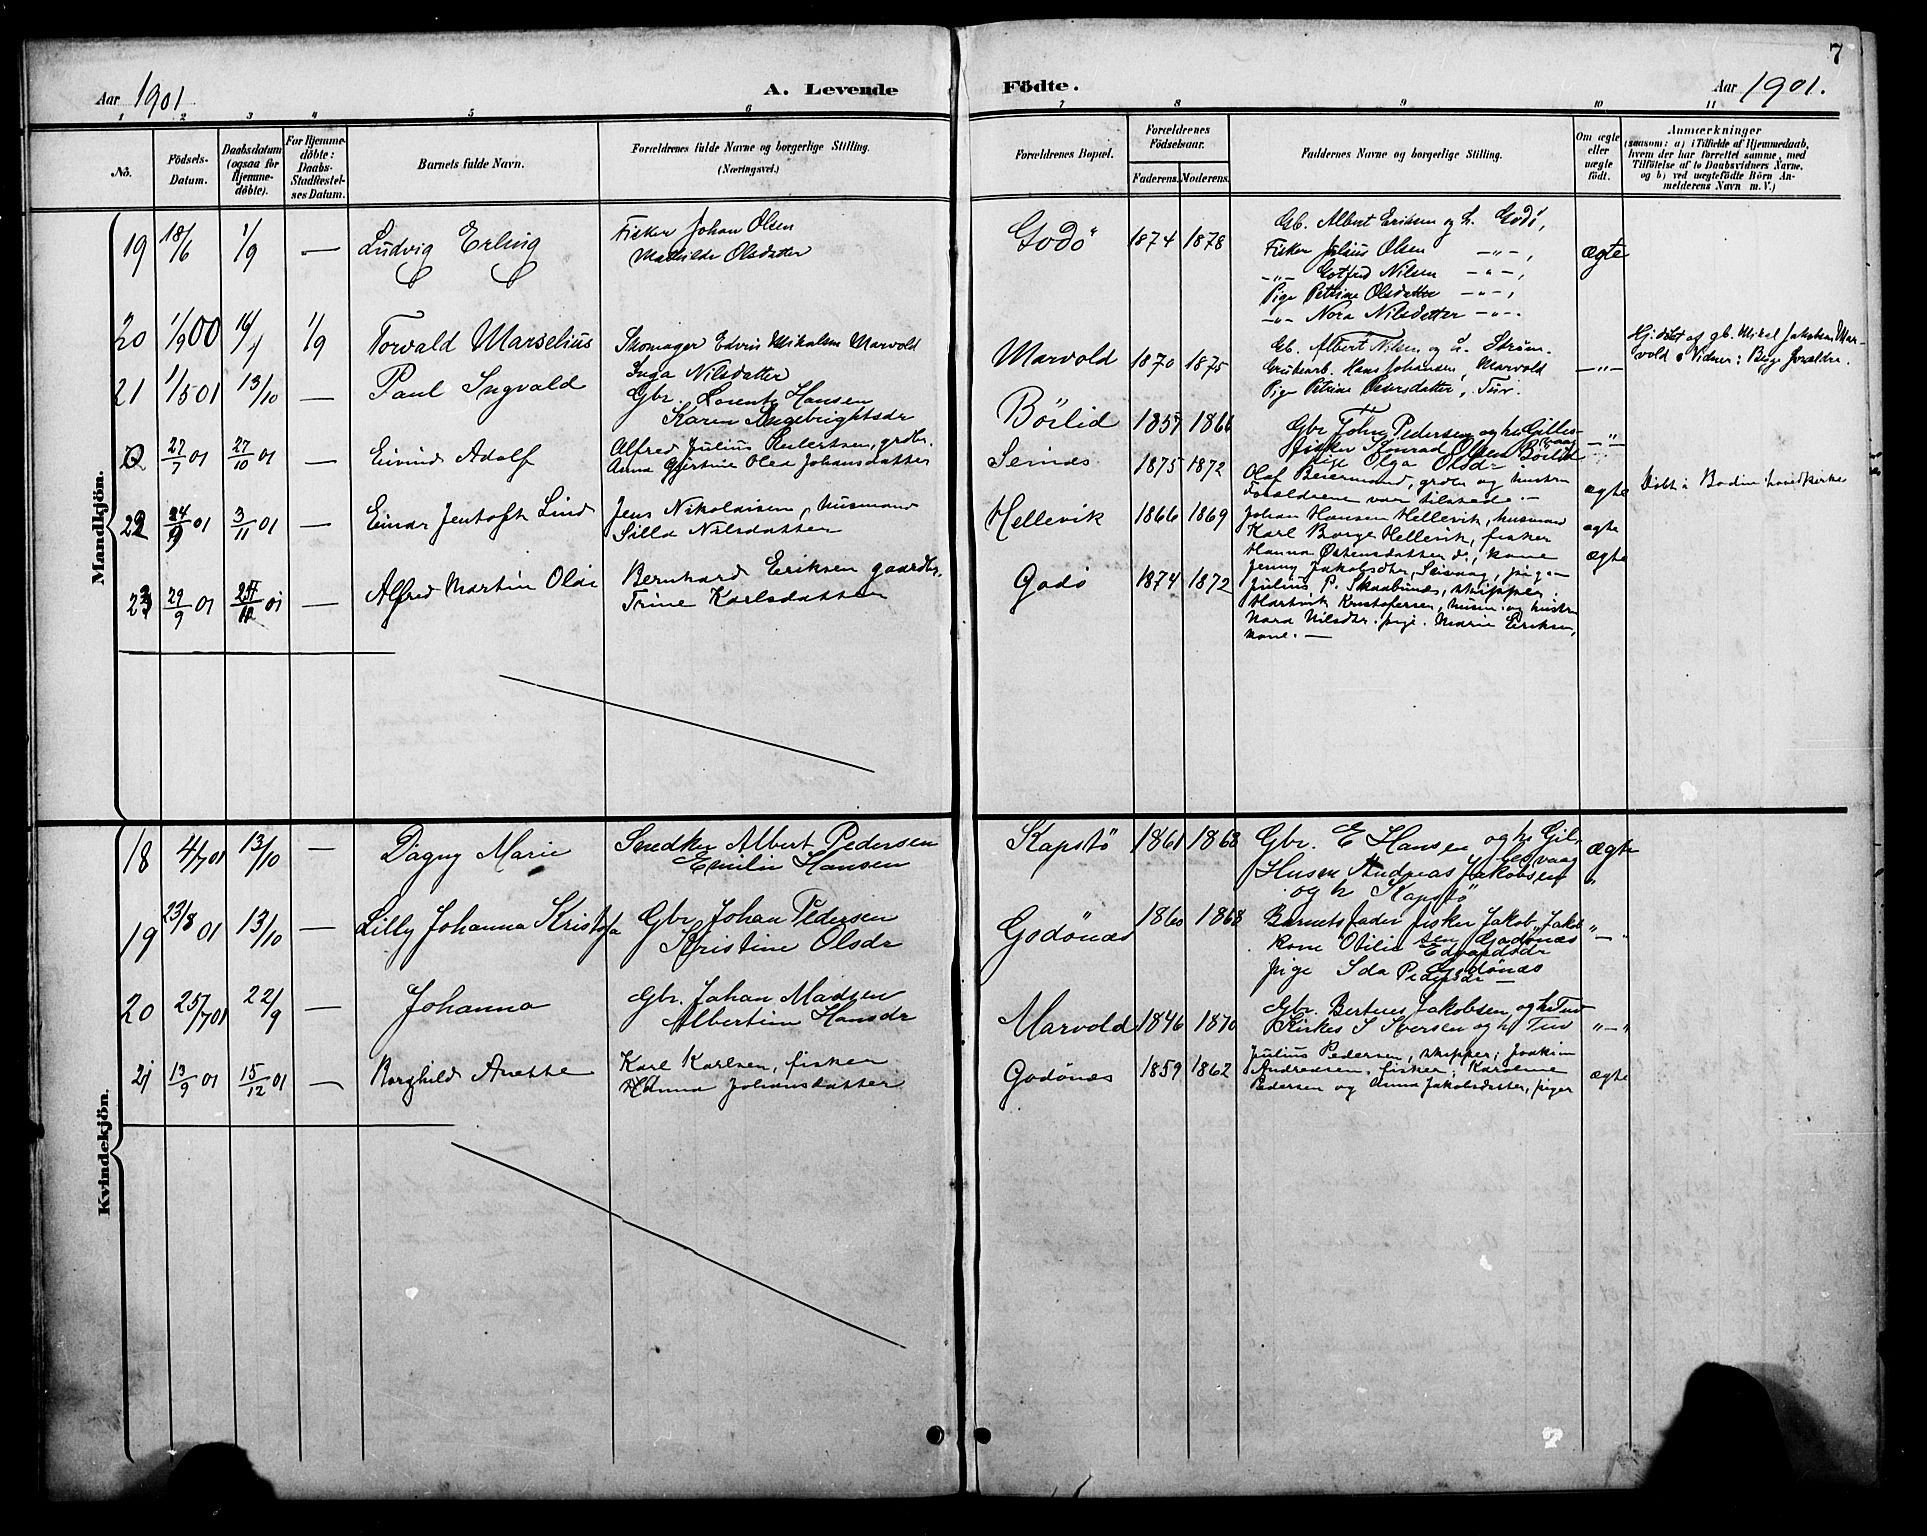 7
Aar 1901 A. Levende Födte. Aar 1901.
1 2 3 4 5 6 7 8 9 10 11
No. Födsels-Datum. Daabsdatum (ogsaa for Hjemme-döbte). For Hjemme-döbte: Daabs-Stadfæstel-ses Datum. Barnets fulde Navn. Forældrenes fulde Navne og borgerlige Stilling. (Næringsvei.) Forældrenes Bopæl. Forældrenes Fødselsaar. Faderens. Moderens. Faddernes Navne og borgerlige Stilling. Om ægte eller uægte født. Anmærkninger (saasom: a) i Tilfælde af Hjemmedaab, hvem der har forrettet samme, med Tilføielse af to Daabsvidners Navne, og b) ved uægtefødte Börn An-melderens Navn m. V.)
Mandkjön.
19 18/6 1/9 — Ludvig Erling Fisker Johan Olsen
Mathilde Olsdatter
Godö 1874 1878 Gb. Albert Eriksen og h. Godö,
Fisker Julius Olsen —"—,
—"— Gotfred Nilsen —"—,
Pige Petrine Olsdatter —"—,
—"— Nora Nilsdetter —"—.
ægte
20 1/9 00 16/1 1/9 Torvald Marselius Skomager Edvin Mikalsen Marvold
Inga Nilsdatter
Marvold 1870 1875 Gb. Albert Nilsen og h. Ström.
Grubearb. Hans Johansen, Marvold
Pige Petrine Peersdatter, Tuv.
—"—
Hj.döbt af gb. Mikal Jakobsen Mar-
vold. Vidner: Begge forældre.
21 1/5 01 13/10 — Paul Ingvald Gbr. Lorents Hansen
Karen Ingebrightsdr
Börlid 1857 1866 Gbr John Pedersen og h. Gilles-
vaag
fisker Konrad Olsen Börlid
pige Olga Olsdr
—"—
22 27/7 01 27/10 01 — Eivind Adolf Alfred Julius Eilertsen, grdbr.
Anna Gjertine Olea Johansdatter
Seines 1875 1872 Olaf Beiermand, grdbr og hustru
Forældrene var tilstede.—
ægte Döbt i Bodin hovedkirke
22 24/9 01 3/11 01 — Einar Jentoft Lind Jens Nikolaisen, husmand
Silla Nilsdatter
Hellevik 1866 1869 Johan Hansen Hellevik, husmand
Karl Borge Hellevik, fisker
Hanna Østensdatter d., kone
Jenny Jakobsdtr, Seivaag, pige —
ægte
23 29/9 01 01 — Alfred Martin Olai Bernhard Eriksen gaardbr.
Trine Karlsdatter
Godö 1874 1872 Julius P. Skaabunes, skipper.
Hartvik Kristofersen, husm. og hustru
Nora Nilsdtr. pige. Marie Eriksen,
kone.—
ægte
Kvindekjön.
18 4/7 01 13/10 — Dagny Marie Snedker Albert Pedersen
Emilie Hansen
Kapstö 1861 1868 Gbr. E Hansen og h. Gil-
lesvaag
Husm Andreas Jakobsen
og h Kapstö
ægte
19 23/8 01 13/10 — Lilly Johanna Kristofa Gbr Johan Pedersen
Kristine Olsdr
Godönes 1860 1868 Barnets fader fisker Jakob Jakob-
sen Godönes
kone Otilie Edvardsdr
Godönes
pige Ida Pedersdr —
"—"
20 25/7 01 22/9 — Johanna Gbr. Johan Madsen
Albertine Hansdr
Marvold 1846 1870 Gbr. Berteus Jakobsen og h. Tuv
Kirkes S Iversen og h Tuv
"—"
21 13/9 01 15/12 01 — Borghild Anette Karl Karlsen, fisker
Hanna Johansdatter
Godönes 1859 1862 Julius Pedersen, skipper; Joakim
Andreasen, fisker; Karoline
Pedersen og Anna Jakobsdatter, piger
ægte